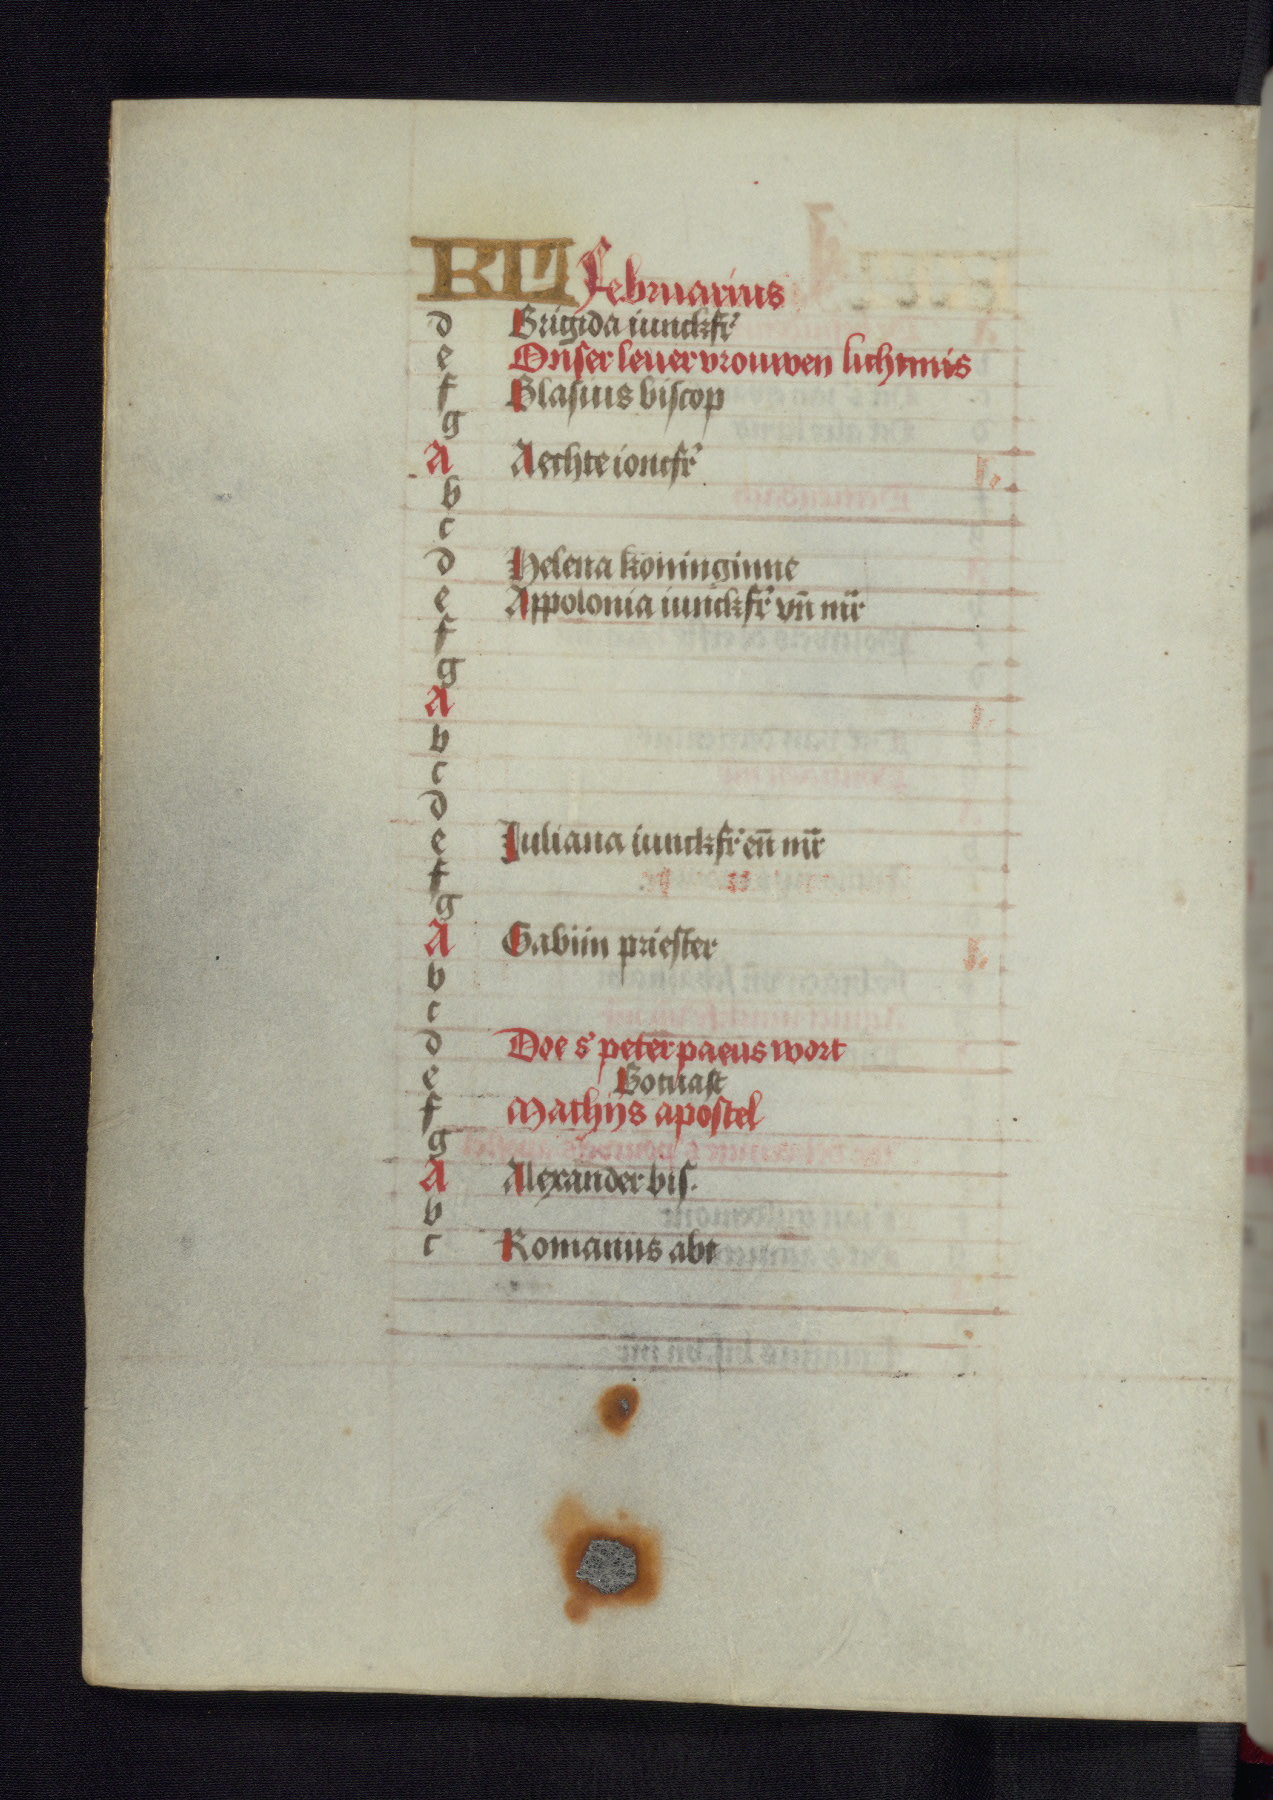 KL Februarius
d Brigida iunckfr̃
e Onser leuer vrouwen lichtmis
f Blasius biscop
g
A Aechte ioncfr̃
b
c
d Helena koninginne
e Appolonia iunckfr̃ vñ mr̃
f
g
A
b
c
d
e Iuliana iunckfr̃ eñ mr̃
f
g
A Gabiin priester
b
c
d Doe s' peter paeus wort
e Votuast
f Mathijs apostel
g
A Alexander bis.
b
c Romanus abt